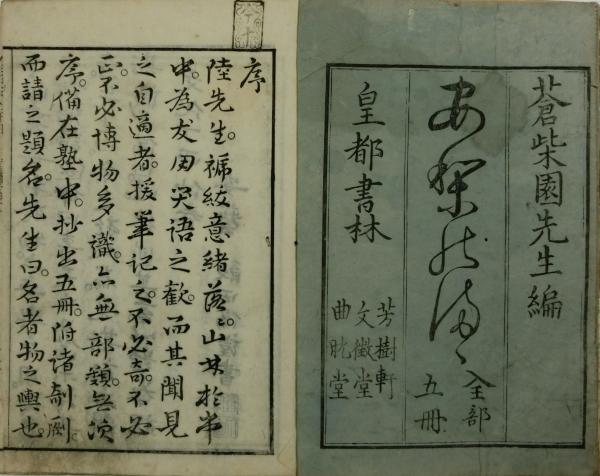 蒼柴園先生編
全部
五冊
皇都書林
芳樹軒
文徴堂
曲肱堂
序
陸先生。褫紱意緒落。山
中。為友笑語之歡。而其聞見
之自適者。援筆記之。不必奇。不必
正。不必博物多識。亦無部類。無次
序。備在塾中。抄出五冊。附諸剞劂。
而請之題名。先生曰。名者物之輿也。